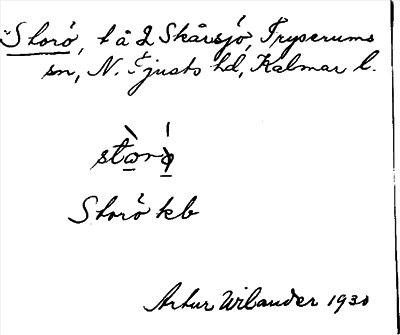 Storö, l å 2 Skårsjö, Tryserums
sn, N. Tjusts hd, Kalmar l.
störö
Storö kb
Artur Wilander 1930